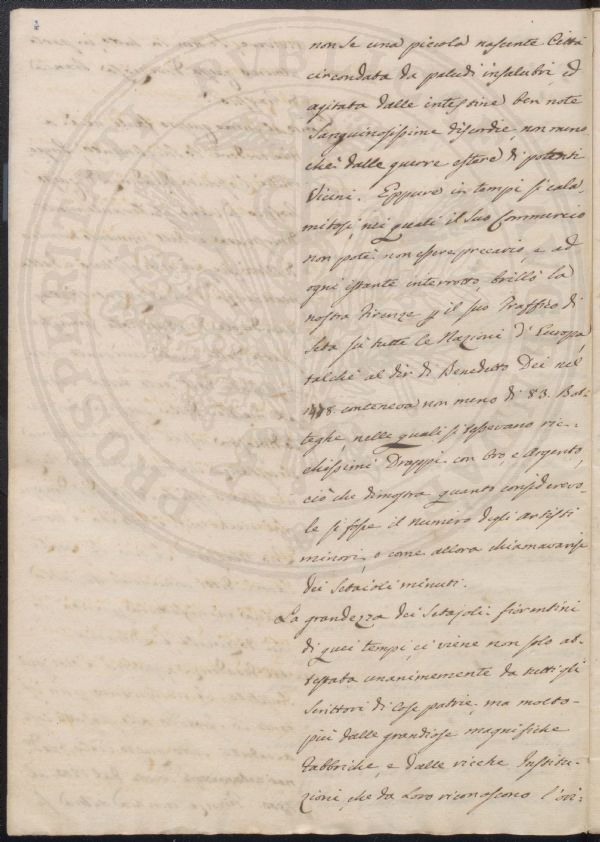 non se una piccola nascente Città
circondata da paludi insalubri, ed
agitata dalle intestine ben note
sanguinosissime discordie, non meno
chè dalle guerre estere di potenti
Vicini. Eppure in tempi sì cala
mitosi, nei quali il suo Commercio
non potè non essere precario, e ad
ogni istante interrotto, brillò la
nostra Firenze p il suo Traffico di
Seta fra tutte le Nazioni d'Europa,
talchè al dir di Benedetto Dei nel
1478. conteneva non meno di 83. Bot-
teghe, nelle quali si tessevano ric-
chissimi Drappi con Oro, e Argento,
ciò che dimostra quanto considerevo-
le si fosse il numero degli artisti
minori, o come allora chiamavansi
dei Setaioli minuti.
La grandezza dei Setajoli fiorentini
di quei tempi ci viene non solo at-
testata unanimemente da tutti gli
Scrittori di Cose patrie, ma molto
più dalle grandiose magnifiche
Fabbriche, e dalle ricche Institu-
zioni, che da Loro riconoscono l'ori-
PROSPERITÀ